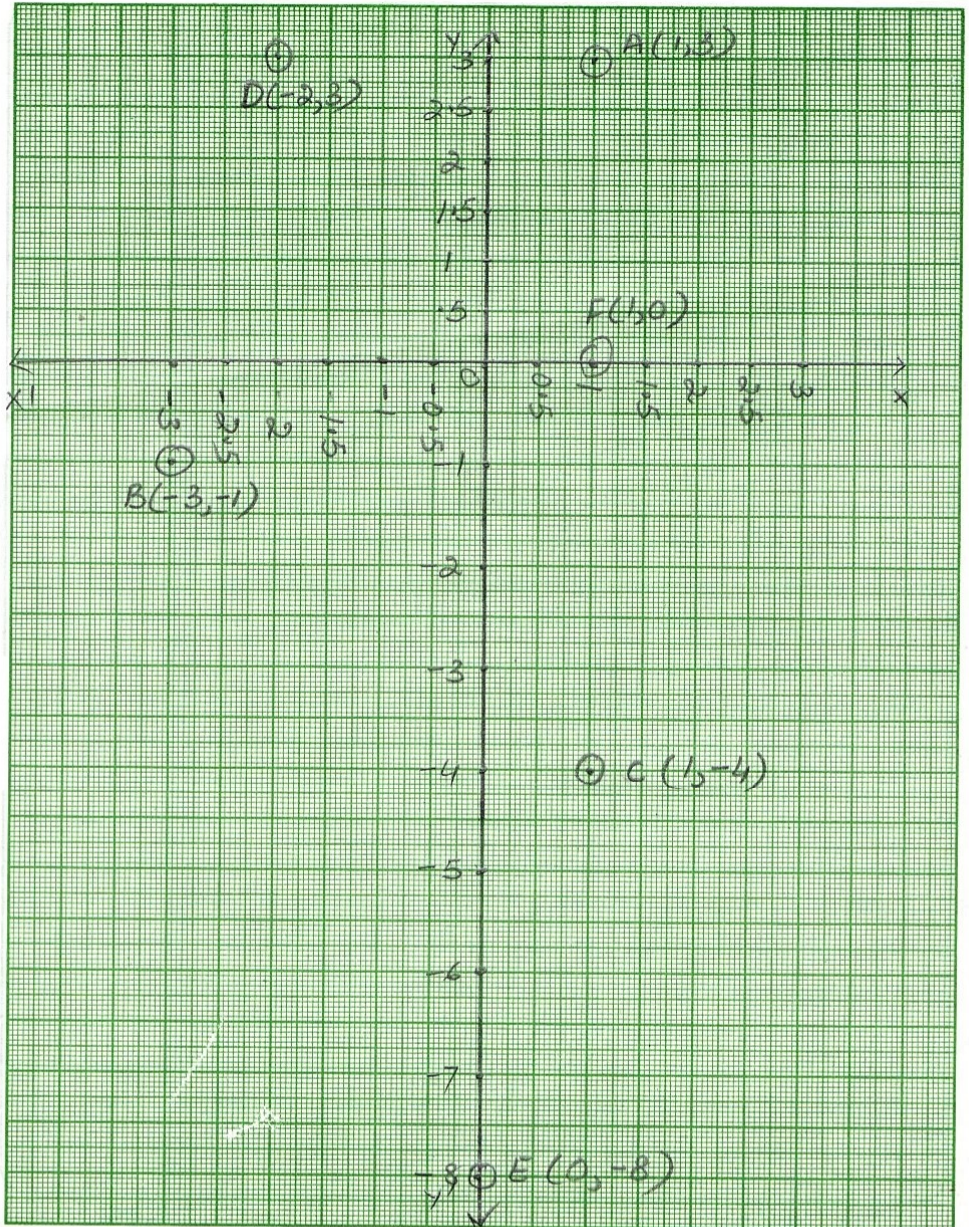 Y
3
A(1,3)
D(-2,3)
2.5
2
1.5
1
.5
F(1,0)
X1
-3
-2.5
2
-1.5
-1
-0.5
0
0.5
1
1.5
2
2.5
3
X
-1
B(-3,-1)
-2
-3
-4
C(1,-4)
-5
-6
-7
-8
E(0,-8)